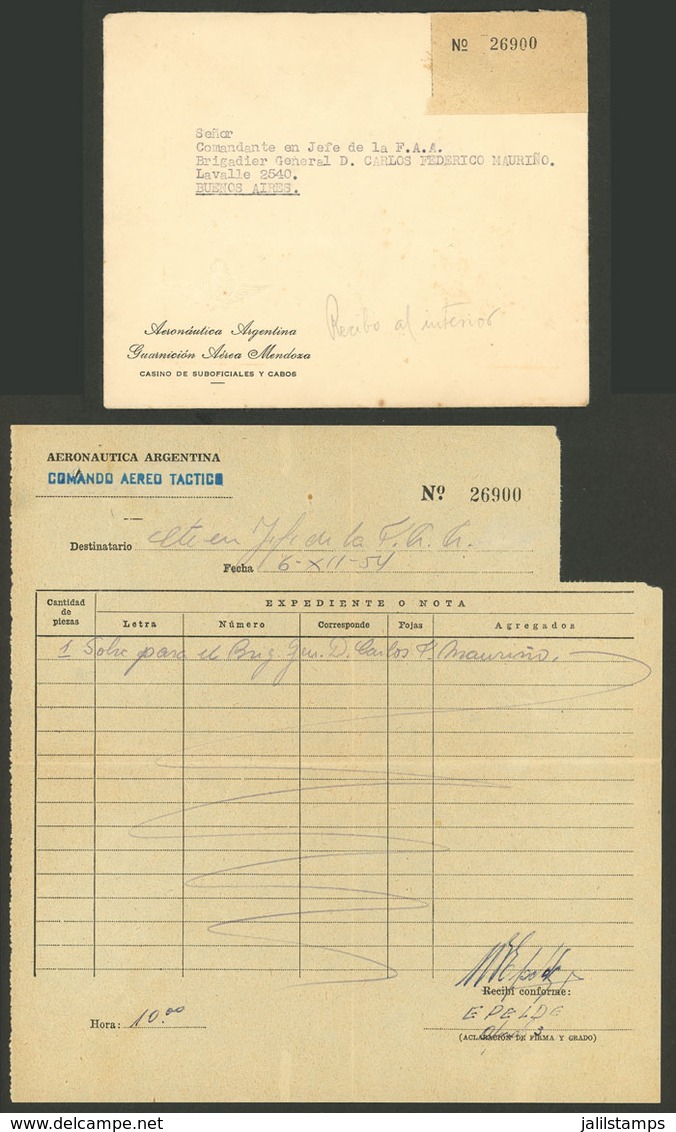 Nº 26900
Señor
Comandante en Jefe de la F.A.A.
Brigadier General D. CARLOS FEDERICO MAURIÑO.
Lavalle 2540.
BUENOS AIRES.
Recibo al interior
Aeronáutica Argentina
Guarnición Aérea Mendoza
CASINO DE SUBOFICIALES Y CABOS
AERONAUTICA ARGENTINA
COMANDO AEREO TACTICO
Nº 26900
Destinatario Cte en Jefe de la F. A. A.
Fecha 6-XII-54
Cantidad de piezas
EXPEDIENTE O NOTA
Letra Número Corresponde Fojas Agregados
1 Sobre para el Brig. Gen. D. Carlos F. Mauriño.
Recibí conforme:
EPELDE
Hora: 10.00
(ACLARACION DE FIRMA Y GRADO)
jalilstamps